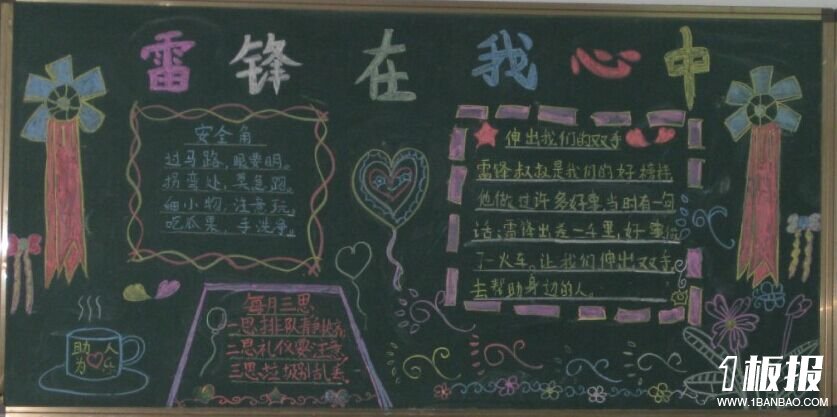 雷锋在我心中
安全角
过马路,眼要明。
拐弯处,莫急跑。
细小物,注意玩。
吃瓜果,手洗净。
伸出我们的双手
雷锋叔叔是我们的好榜样
他做过许多好事,当时有一句
话:雷锋出差一千里,好事做
了一火车。让我们伸出双手,
去帮助身边的人。
每月三思
一思排队静
二思礼仪要注意
三思垃圾别乱丢
助人
为乐
1板报
WWW.1BANBAO.COM